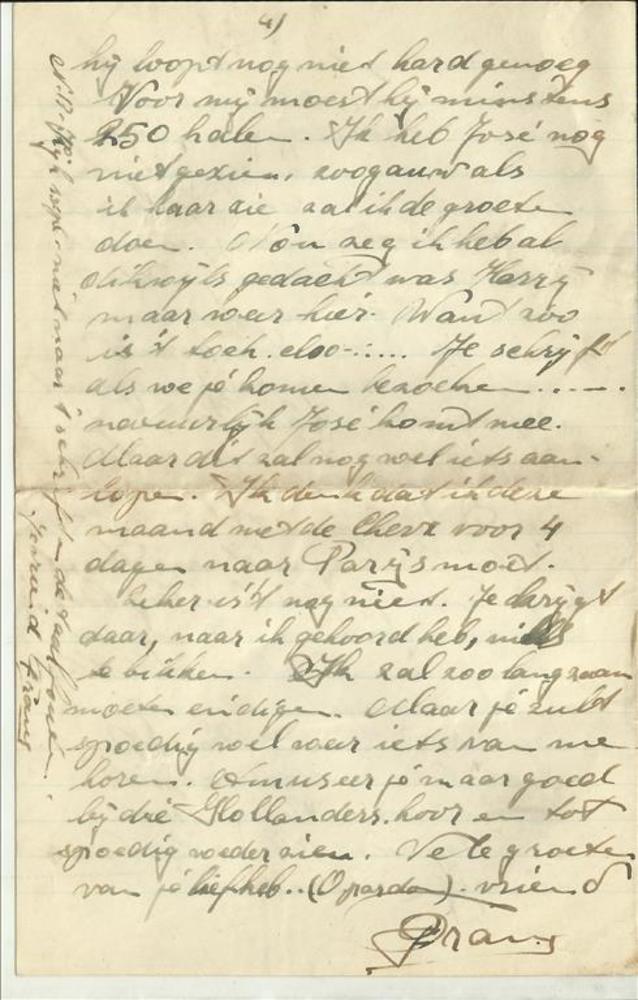 4)
hij loopt nog niet hard genoeg
Voor mij moest hij minstens
250 halen. Ik heb José nog
niet gezien, zoogauw als
ik haar zie zal ik de groeten
doen. Nou zeg ik heb al
dikwijls gedacht was Harry
maar weer hier. Want zoo
is 't toch. eloo-:.... Je schrijft
als we jé komen bezoeken .....
natuurlijk José komt mee.
Maar dit zal nog wel iets aan-
lopen. Ik denk dat ik deze
maand met de Chevr voor 4
dagen naar Parijs moet.
Zeker is 't nog niet. Je krijgt
daar, naar ik gehoord heb, niets
te bikken. Ik zal zoo langzaam
moeten eindigen. Maar jé zult
spoedig wel weer iets van me
horen. Amuseer jé maar goed
bij die Hollanders, hoor en tot
spoedig wederzien. Vele groeten
van jé liefheb..(O pardon). vriend
Frans
N.B. kijk niet naar 't schrift en de taalfouten.
vriend Frans